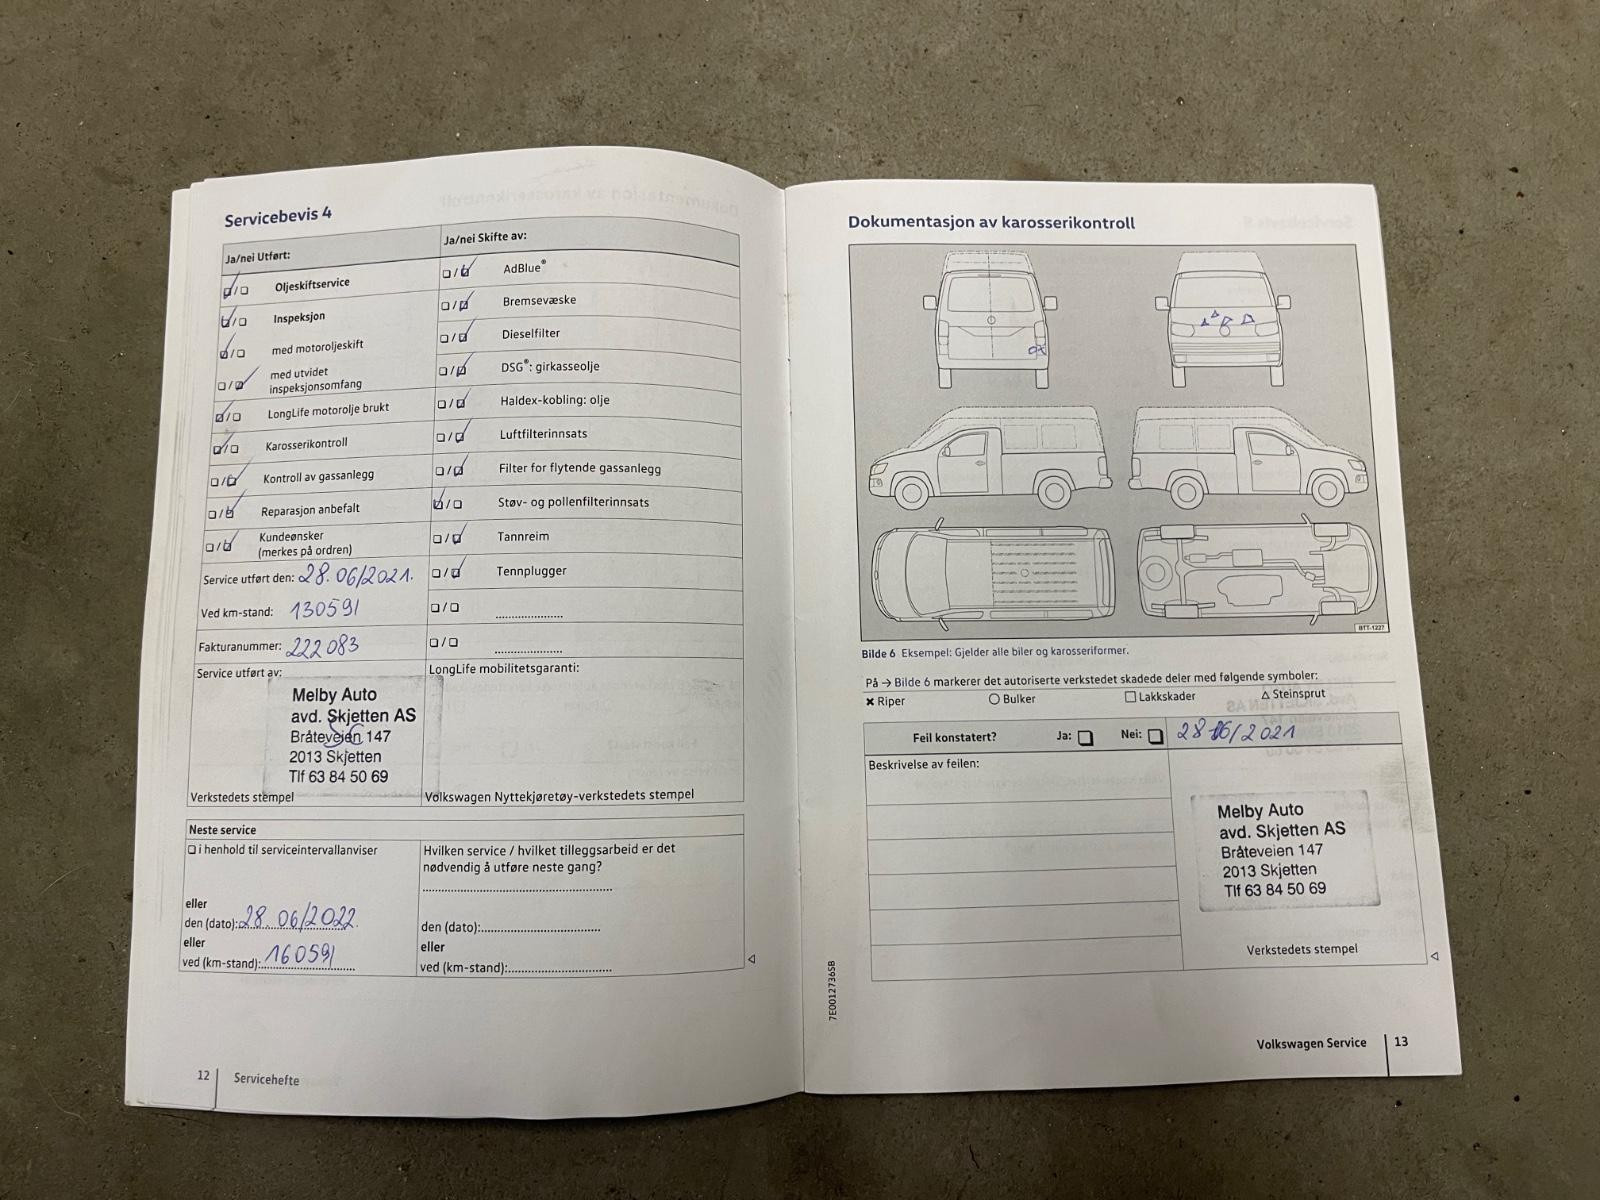 Servicebevis 4
Ja/nei Utført:
Oljeskiftservice
Inspeksjon
med motoroljeskift
med utvidet
inspeksjonsomfang
LongLife motorolje brukt
Karosserikontroll
Kontroll av gassanlegg
Reparasjon anbefalt
Kundeønsker
(merkes på ordren)
Service utført den: 28.06/2021.
Ved km-stand: 130591
Fakturanummer: 222083
Ja/nei Skifte av:
AdBlue®
Bremsevæske
Dieselfilter
DSG®: girkasseolje
Haldex-kobling: olje
Luftfilterinnsats
Filter for flytende gassanlegg
Støv- og pollenfilterinnsats
Tannreim
Tennplugger
Service utført av:
Melby Auto
avd. Skjetten AS
Bråteveien 147
2013 Skjetten
Tlf 63 84 50 69
Verkstedets stempel
LongLife mobilitetsgaranti:
Volkswagen Nyttekjøretøy-verkstedets stempel
Neste service
i henhold til serviceintervallanviser
eller
den (dato): 28.06/2022.
eller
ved (km-stand): 160591
Hvilken service / hvilket tilleggsarbeid er det
nødvendig å utføre neste gang?
den (dato):
eller
ved (km-stand):
12 Servicehefte
Dokumentasjon av karosserikontroll
BTT-1227
Bilde 6 Eksempel: Gjelder alle biler og karosseriformer.
På → Bilde 6 markerer det autoriserte verkstedet skadede deler med følgende symboler:
✖ Riper ○ Bulker □ Lakkskader △ Steinsprut
Feil konstatert? Ja: □ Nei: □ 28 06/2021
Beskrivelse av feilen:
Melby Auto
avd. Skjetten AS
Bråteveien 147
2013 Skjetten
Tlf 63 84 50 69
Verkstedets stempel
7E0012736SB
Volkswagen Service 13